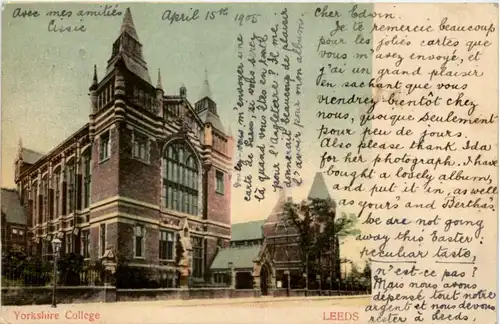 Avec mes amitiés
Cissie
April 15th 1905
Cher Edwin.
Je te remercie beaucoup
pour les jolies cartes que
vous m'avez envoyé, et
j'ai un grand plaisir
en sachant que vous
viendrez bientot chez
nous, quoique seulement
pour peu de jours.
Also please thank Ida
for her photograph. I have
bought a lovely album,
and put it in, as well
as yours and Bertha's.
We are not going
away this Easter.
peculiar taste,
n'est-ce pas?
Mais nous avons
dépensé tout notre
argent et nous devons
rester à Leeds.
m'envoyer une
carte de Paris, ou serez
là quand vous êtes en route
pour l'Angleterre? Il me
donnerait beaucoup de plaisir
à l'avoir pour mon album.
Yorkshire College
LEEDS